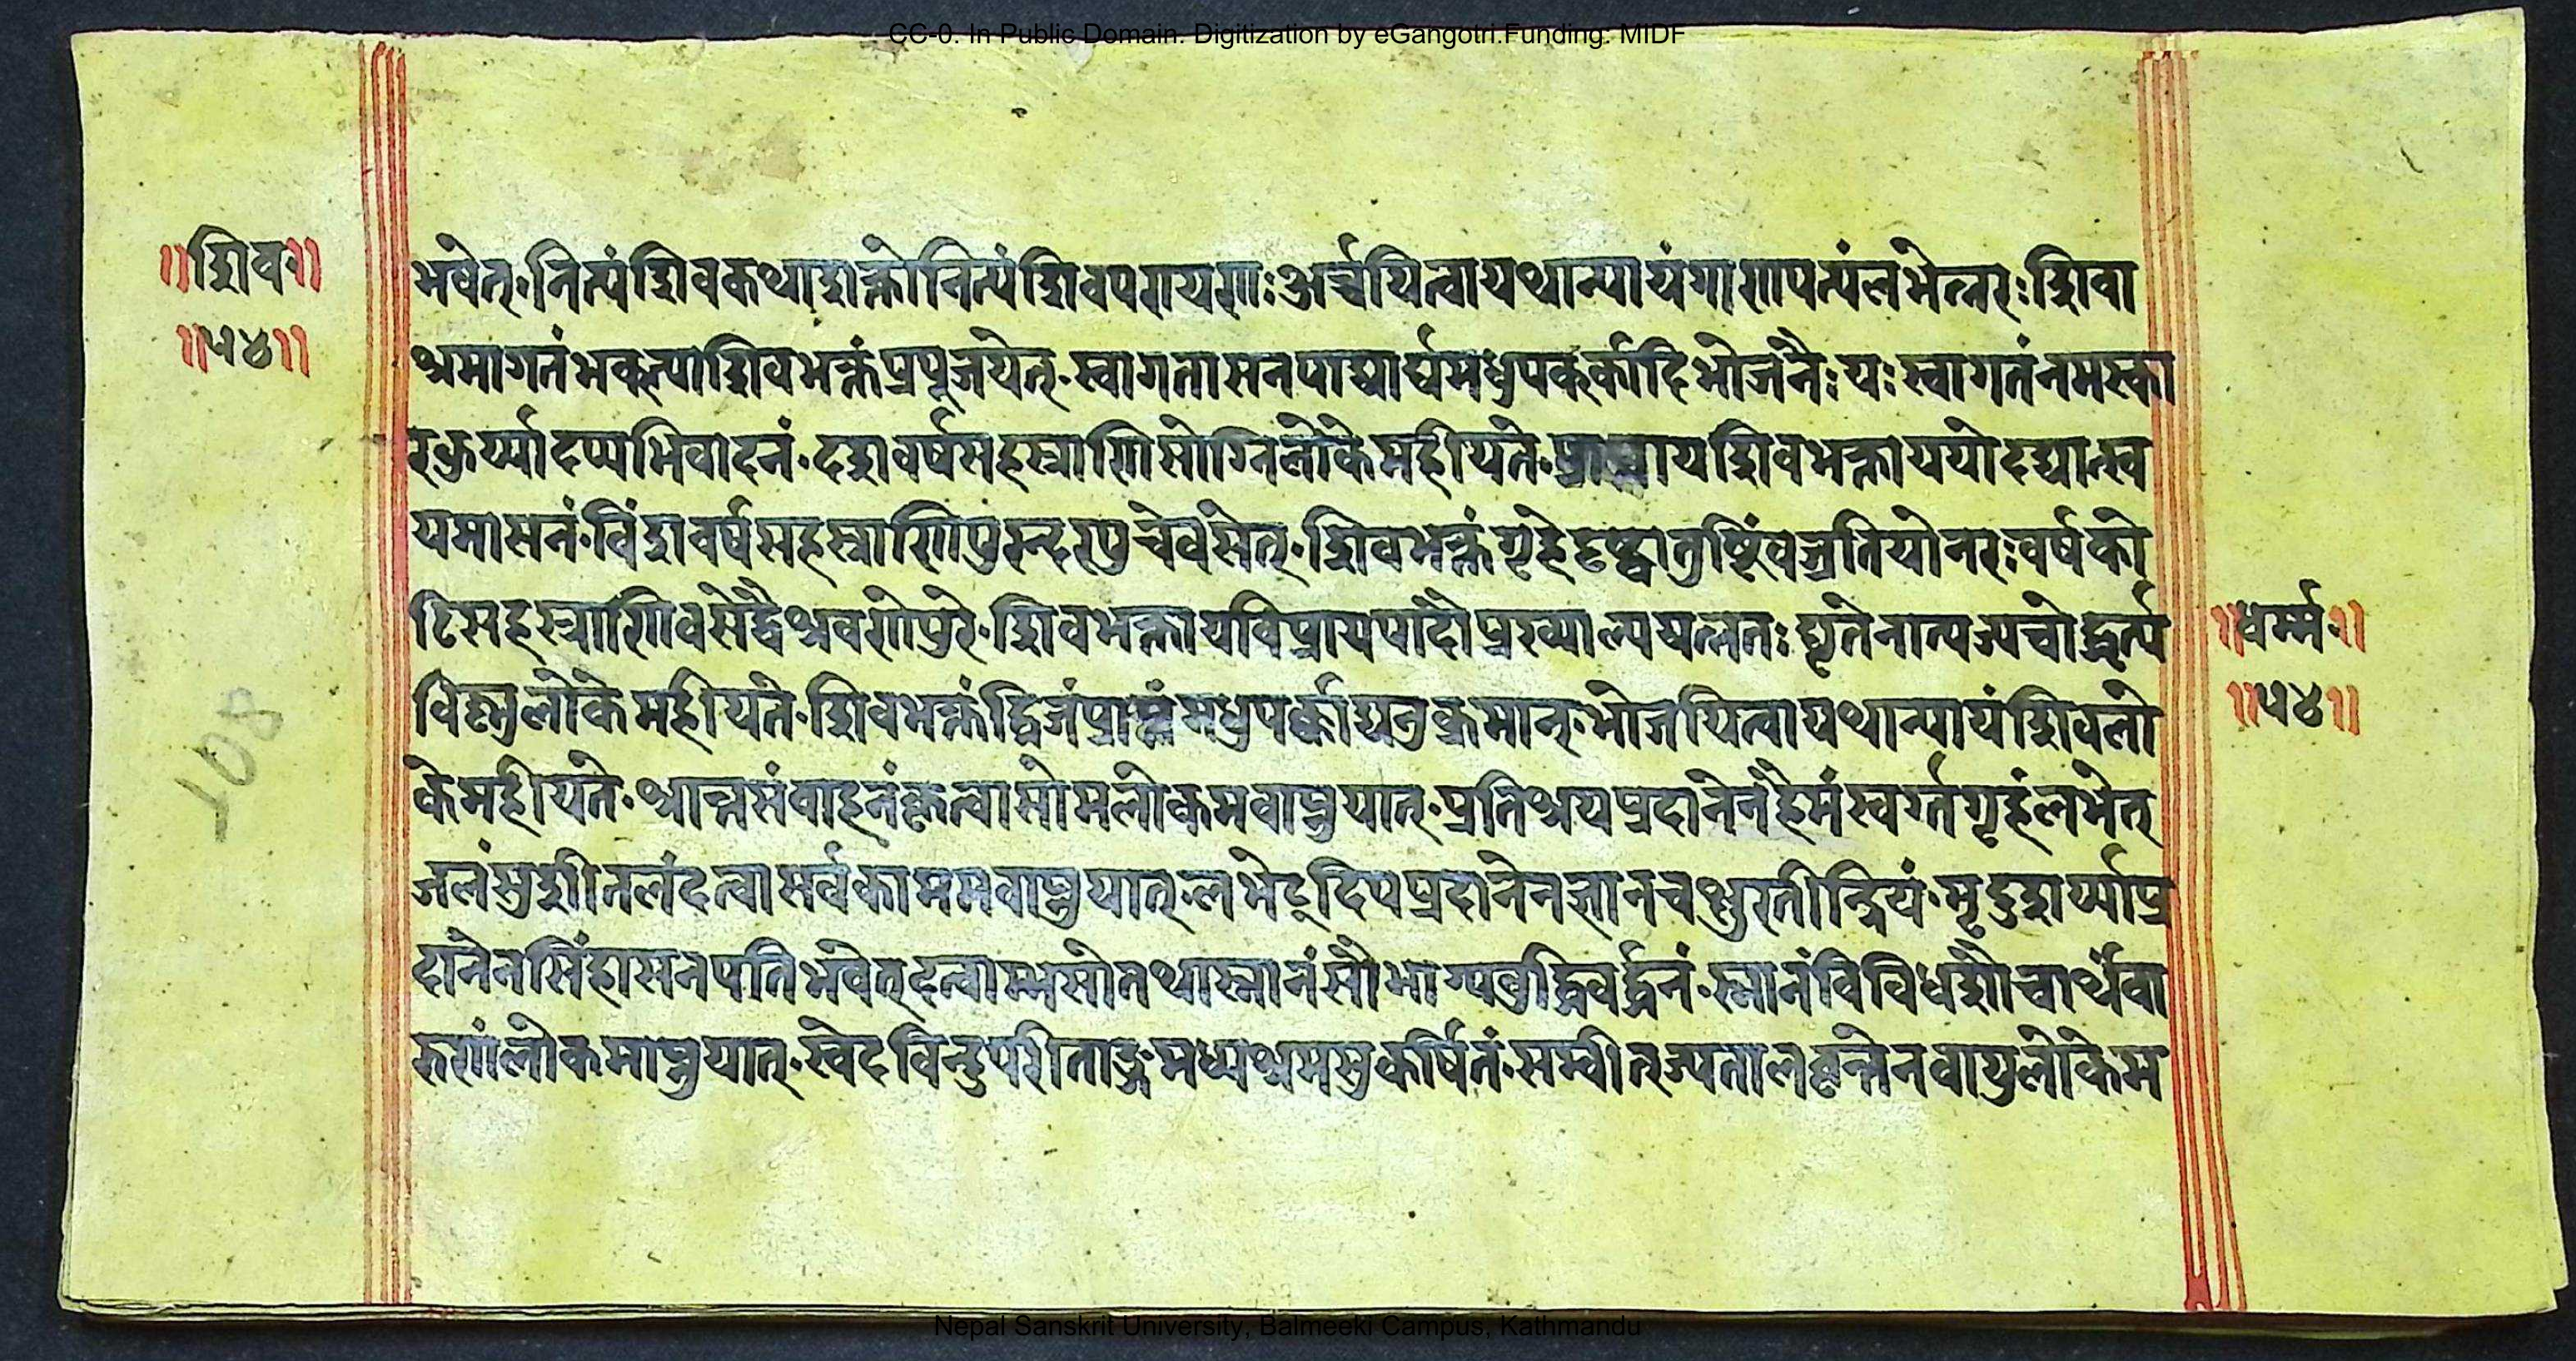 CC-0. In Public Domain. Digitization by eGangotri.Funding: MIDF
॥शिव॥
॥५४॥
भवेत्·नित्यंशिवकथाशक्तोनित्यंशिवपरायणः अर्च्चयित्वायथान्यायंगाणापत्यंलभेन्नरः शिवा
श्रमागतंभक्त्याशिवभक्तंप्रपूजयेत्·स्वागतासनपाद्यार्घमधुपर्क्कादिभोजनैः यः स्वागतंनमस्का
रकुर्य्यादप्यभिवादनं·दशवर्षसहस्त्राणिसोग्निलोकेमहीयते· शिवभक्तायययोदद्यात्स्व
यमासनं·विंशवर्षसहस्त्राणिपुरन्दरपुरेवसेत्·शिवभक्तंगृहेदृष्ट्वातुष्टिंव्रजतियोनरः वर्षको
टिसहस्त्राणिवसेद्वैश्रवणेपुरे·शिवभक्तायविप्रायपादौप्रख्याल्ययत्नतः घृतेनात्यज्यचोद्वर्त्य
विष्णुलोकेमहीयते·शिवभक्तंद्विजंप्राप्तंमधुपर्क्काद्यनुक्रमात्·भोजयित्वायथान्यायंशिवलो
केमहीयते·श्रान्तसंवाहनंकृत्वासोमलोकमवाप्नुयात्·प्रतिश्रयप्रदानेनहैमंस्वर्गगृहंलभेत्
जलंसुशीतलंदत्वासर्वकाममवाप्नुयात्·लभेद्दिपप्रदानेनज्ञानचक्षुरतीन्द्रियं·मृदुशर्य्याप्र
दानेनसिंहासनपतिर्भवेत्दत्वाम्भसोतथास्नानंसौभाग्यवृद्धिवर्द्धनं·स्नानंविविधशौचार्थंवा
रुणंलोकमाप्नुयात्·स्वेदविन्दुपरीताङ्गमध्यश्रमसुकर्षितं·सम्वीत्ज्यतालवृन्तेनवायुलोकेम
॥धर्म्म॥
॥५४॥
108
Nepal Sanskrit University, Balmeeki Campus, Kathmandu